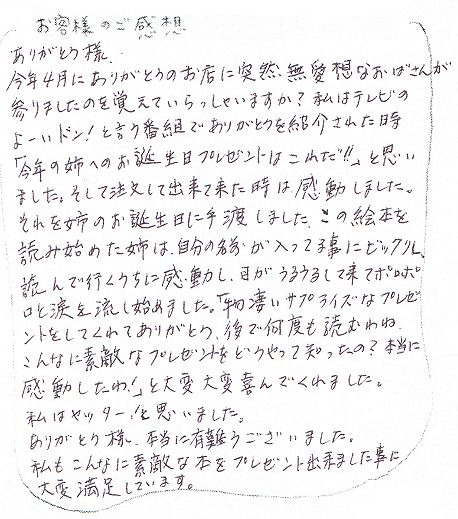 お客様のご感想
ありがとう様、
今年4月にありがとうのお店に突然無愛想なおばさんが
参りましたのを覚えていらっしゃいますか?私はテレビの
よーいドン!と言う番組でありがとうを紹介された時
「今年の姉へのお誕生日プレゼントはこれだ!!」と思い
ました。そして注文して出来て来た時は感動しました。
それを姉のお誕生日に手渡しました。この絵本を
読み始めた姉は、自分の名前が入ってる事にビックリし、
読んで行くうちに感動し、目がうるうるして来てポロポ
ロと涙を流し始めました。「物凄いサプライズなプレゼ
ントをしてくれてありがとう、後で何度も読むわね。
こんなに素敵なプレゼントをどうやって知ったの?本当に
感動したわ!」と大変大変喜んでくれました。
私はヤッター!と思いました。
ありがとう様、本当に有難うございました。
私もこんなに素敵な本をプレゼント出来ました事に
大変満足しています。